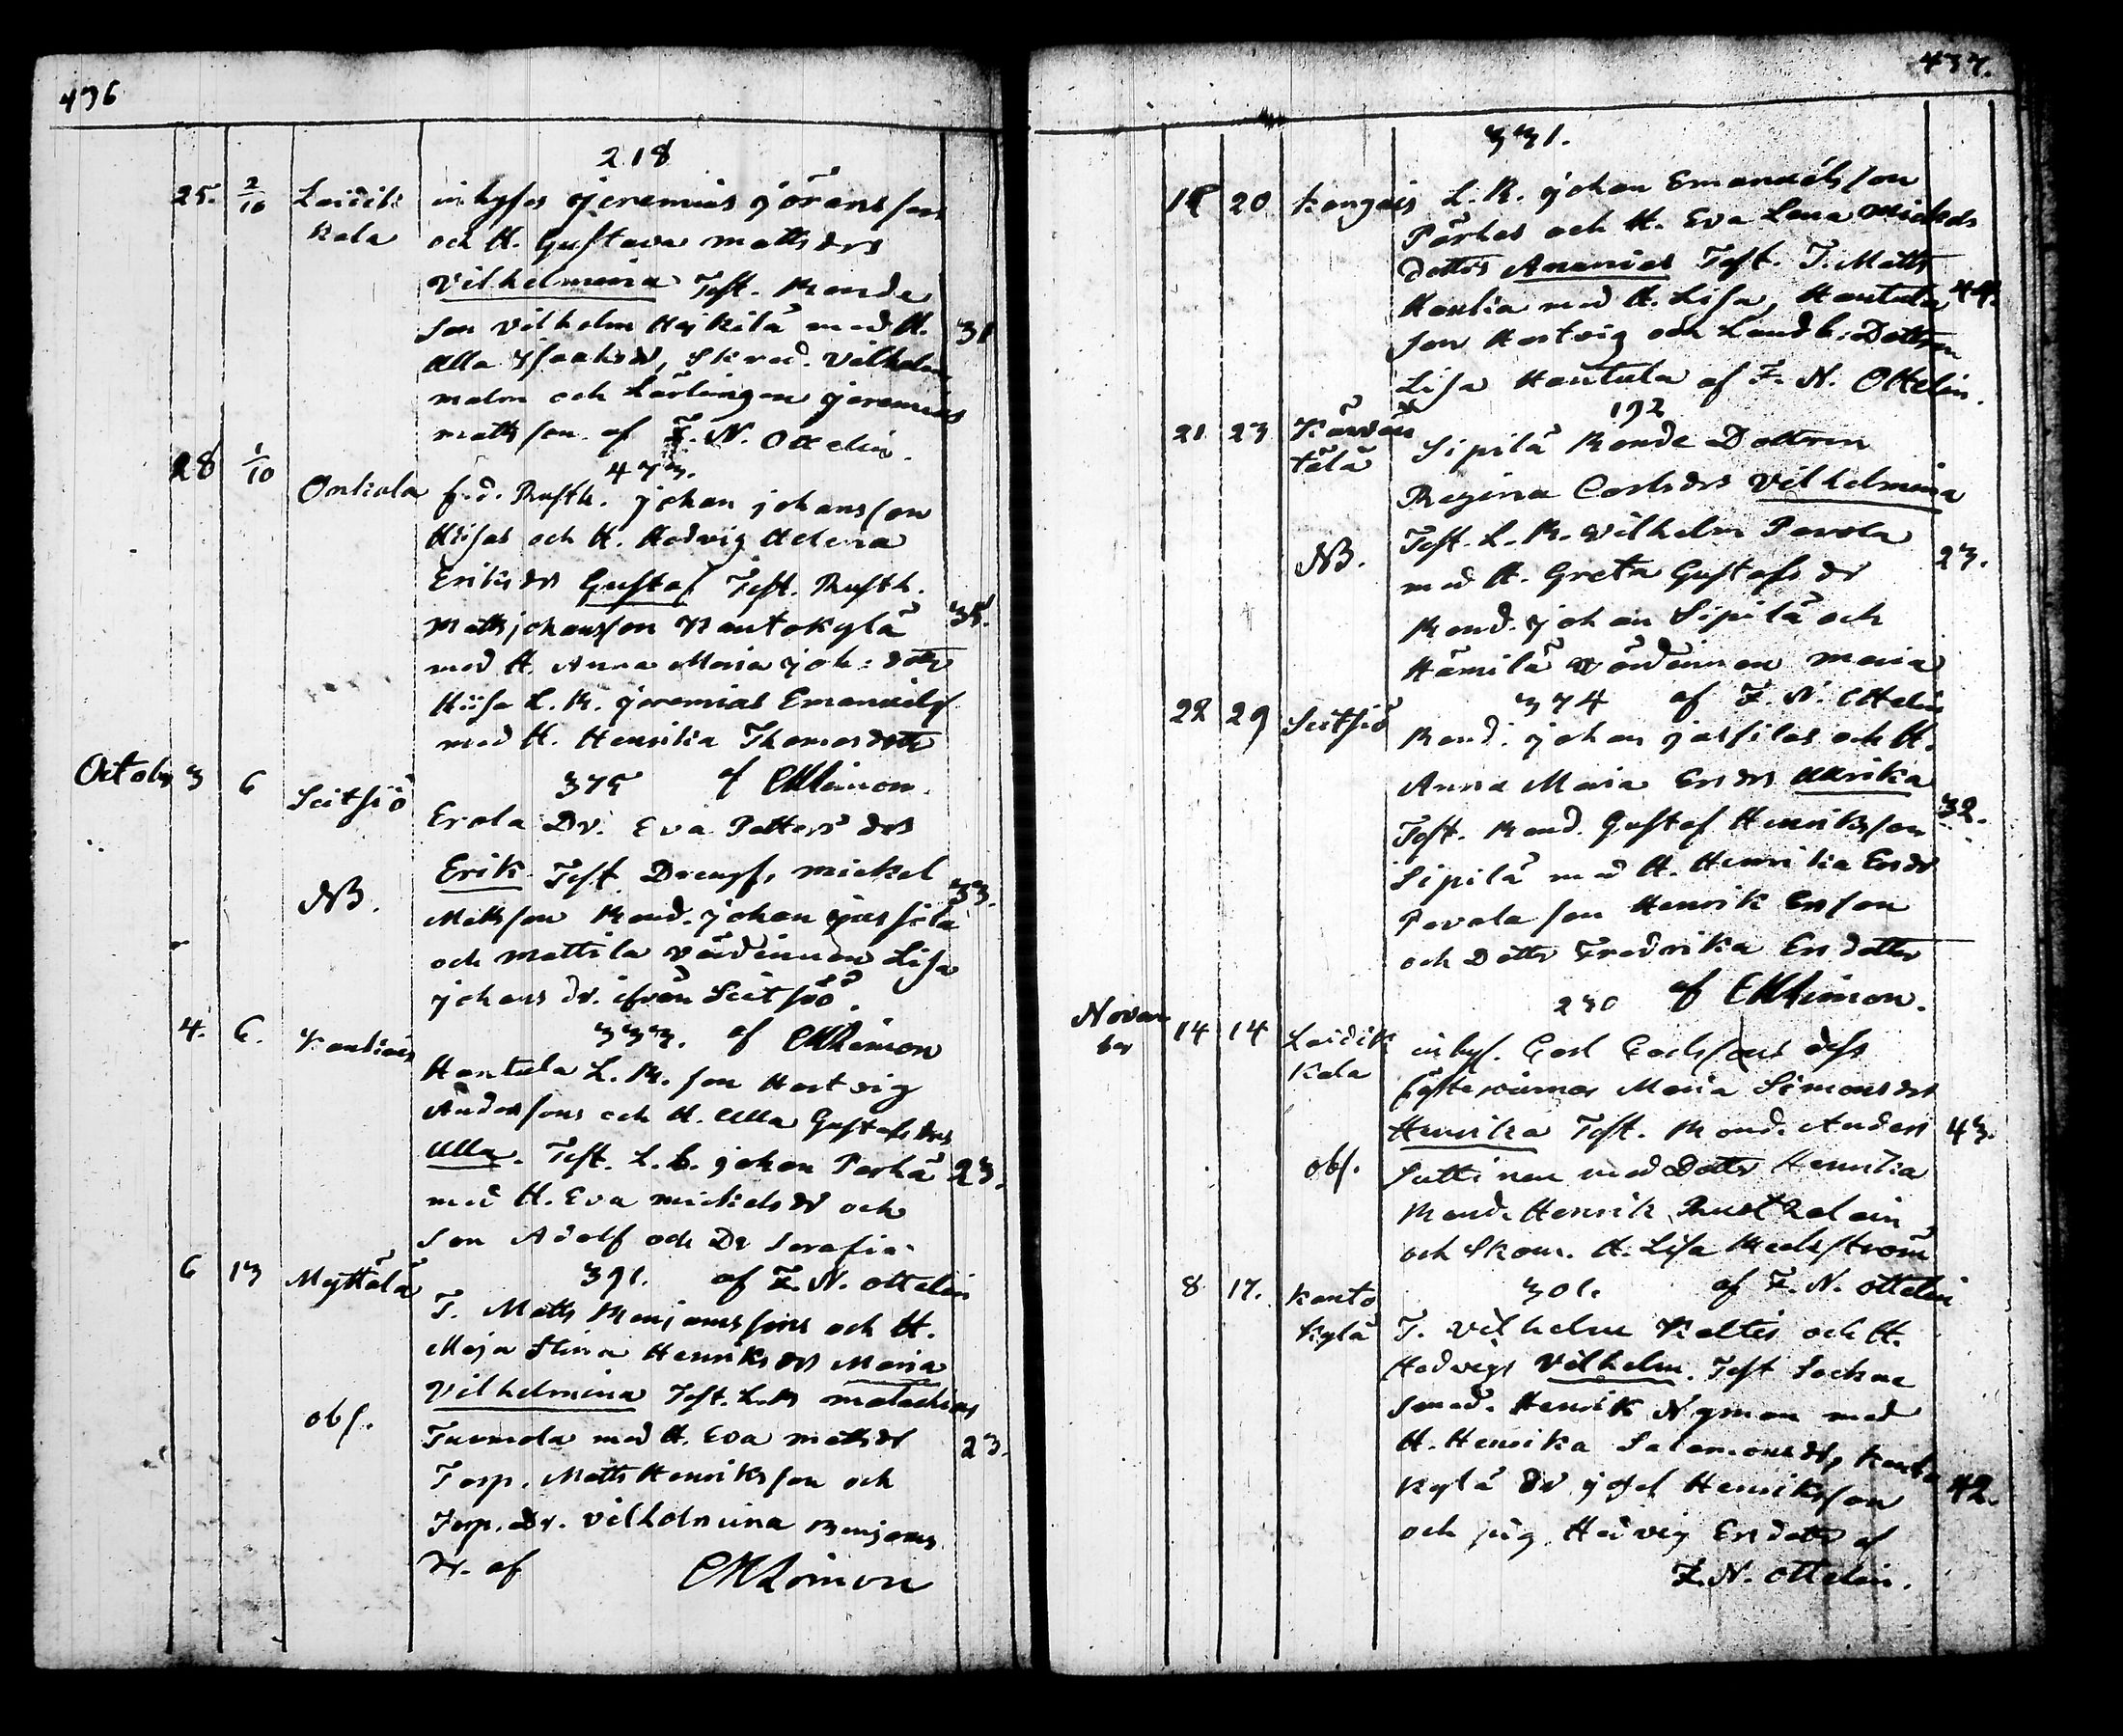 436
218
25. 2/10 Laidik inhyses Jeremias Göransson
kala och H. Gustava Mattsdrs
Vilhelmina Test. Bonde
son Vilhelm Heikilä med H. 31
Ulla Isaaksdr, Skred. Vilhelm
malm och Lärlingen Jeremias
Mattsson af F. N. Ottelin.
473.
28 1/10 Onkiala f.d. Rusth. Johan Johansson
Hiisas och H. Hedvig Helena
Eriksdrs Gustaf Test. Rusth.
Matts Johansson Kantokylä 35.
med H. Anna Maria Joh: dotter
Hiisa L. B. Jeremias Emanuels
med H. Henrika Thomasdotter
375 af CHLimon.
October 3 6 Seitsiö Erola Dr. Eva Petters drs
Erik Test Drengs. Mickel
NB. Mattsson Bond. Johan Jussila 33.
och Mattila värdinnan Lisa
Johans dr. ifrån Seitsiö.
333. af CHLimon
4. 6. Kantiais Hantula L. B. son Hartvig
Anderssons och H. Ulla Gustafsdrs
Ulla. Test. L. b. Johan Parha 23.
med H. Eva Mickelsdr och
Son Adolf och Dr Serafia.
391. af F. N. Ottelin
6 13 Myttälä T. Matts Benjamssons och H.
Maja Stina Henriksdrs Maria
Vilhelmina Test. L. B Malachias
obs. Tuomola med H. Eva Mattsdr 23.
Torp. Matts Henriksson och
Torp. Dr. Vilhelmina Benjams
dr. af CHLimon
437.
331.
15 20 Kangais L. B. Johan Emanuelsson
Parhas och H. Eva Lena Mickels
dotters Ananias Test. T. Matts
Hantia med H. Lisa, Hantula 44.
son Hartvig och Landb: Dottren
Lisa Hantula af F. N. Ottelin.
192
21 23 Kärväntälä Sipilä Bonde Dottren
Regina Carlsdrs Vilhelmina
NB. Test. L. B. Vilhelm Perola 23.
med H. Greta Gustafs dr
Bond. Johan Sipilä och
Hämilä värdinnan Maria
374 af F. N. Ottelin
22 29 Seitsiö Bond. Johan Jussilas och H.
Anna Maria Ersdrs Ullrika
Test. Bond. Gustaf Henriksson 32.
Sipilä med H. Henrika Ersdr
Pavola son Henrik Ersson
och Dotter Fredrika Ersdotter
230 af CHLimon.
November 14 14 Laidik inhys. Carl Carlssons dess
kala fästeqvinnas Maria Simonsdrs
Henrika Test. Bond. Anders 43.
obs. Suttinen med Dotter Henrika
Bond. Henrik Rusthelain
och Skom. H. Lisa Backström
301. af F. N. Ottelin
8 17. Kanto T. Vilhelm Keltis och H.
kylä Hedvigs Vilhelm. Test Sockne
smed. Henrik Nyman med
H. Henrika Salomonsdr, Kanto
kylä Dr Josef Henriksson 42.
och pig. Hedvig Ersdotter af
F. N. Ottelin.